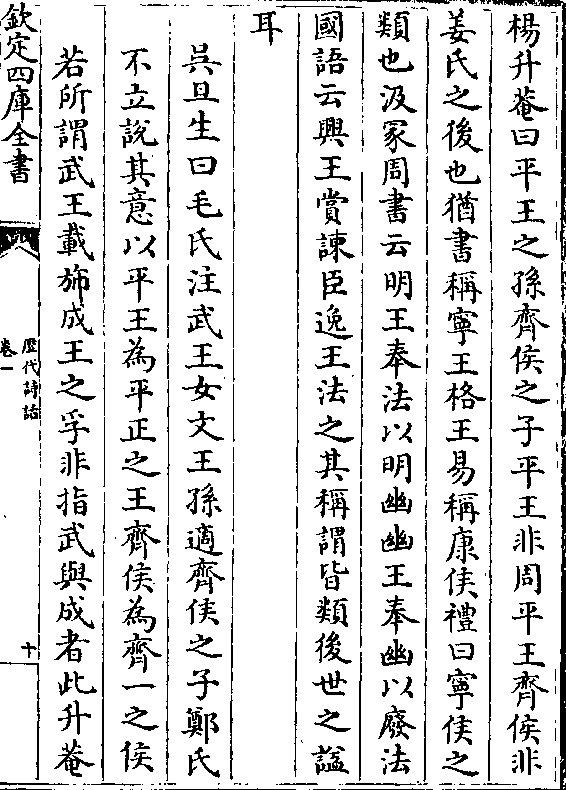 楊升菴曰平王之孫齊侯之子平王非周平王齊侯非
姜氏之後也猶書稱寧王格王易稱康侯禮曰寧侯之
類也汲冢周書云明王奉法以明幽幽王奉幽以廢法
國語云興王賞諫臣逸王法之其稱謂皆類後世之諡
耳
吳旦生曰毛氏注武王女文王孫適齊侯之子鄭氏
不立說其意以平王為平正之王齊侯為齊一之侯
若所謂武王載斾成王之孚非指武與成者此升菴
欽定四庫全書
歷代詩話
卷一
十